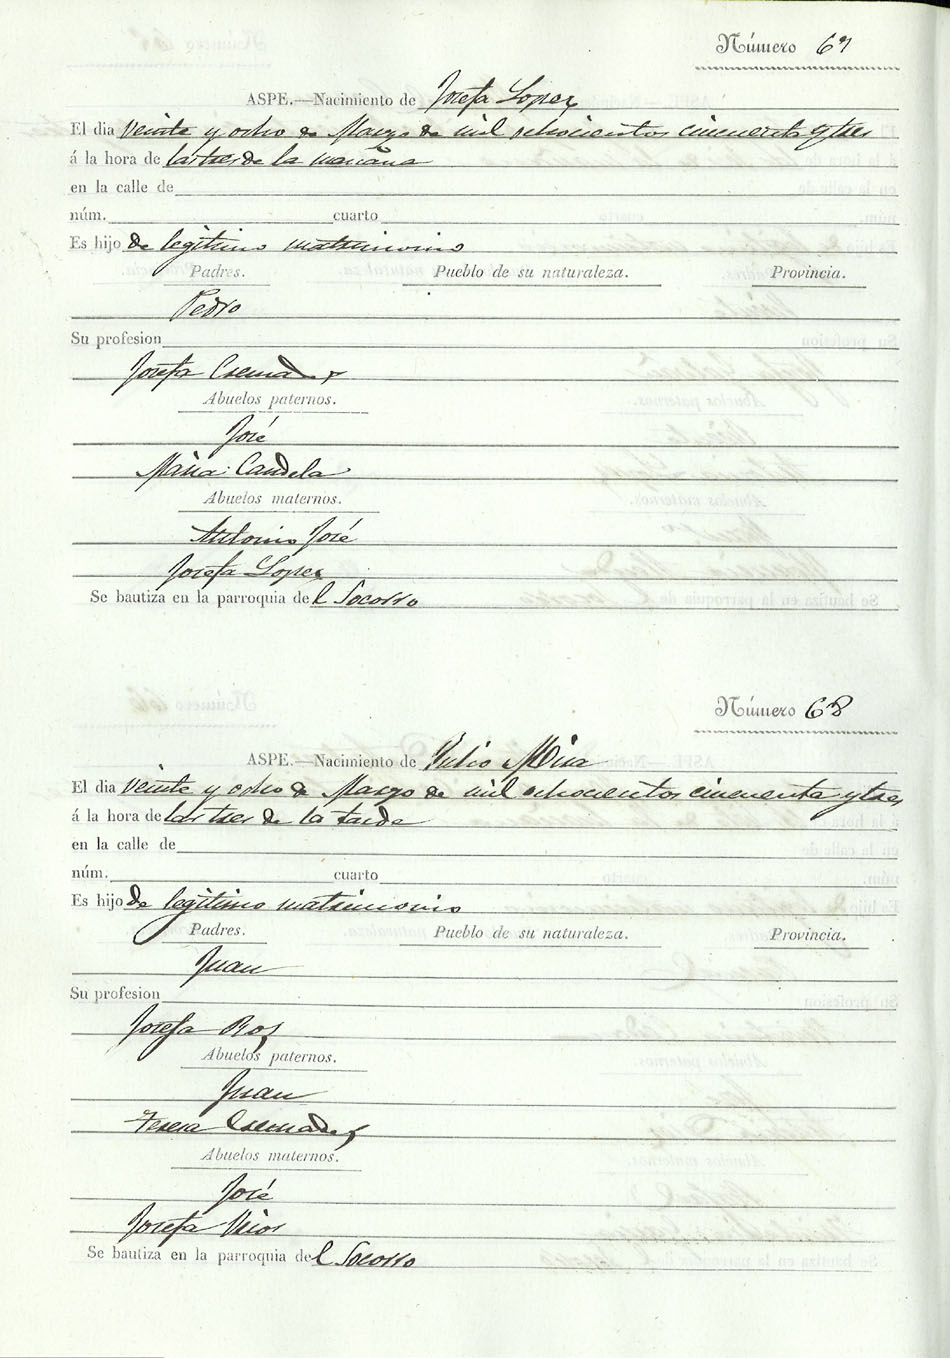 Número 67
ASPE.—Nacimiento de Josefa Lopez
El dia veinte y ocho de Marzo de mil ochocientos cincuenta y tres
á la hora de las tres de la mañana
en la calle de
núm. cuarto
Es hijo de legitimo matrimonio
Padres. Pueblo de su naturaleza. Provincia.
Pedro
Su profesion
Josefa Cremades
Abuelos paternos.
José
Maria Candela
Abuelos maternos.
Antonio José
Josefa Lopez
Se bautiza en la parroquia del Socorro
Número 68
ASPE.—Nacimiento de Julio Mira
El dia veinte y ocho de Marzo de mil ochocientos cincuenta y tres
á la hora de las tres de la tarde
en la calle de
núm. cuarto
Es hijo de legitimo matrimonio
Padres. Pueblo de su naturaleza. Provincia.
Juan
Su profesion
Josefa
Abuelos paternos.
Juan
Teresa Cremades
Abuelos maternos.
José
Josefa
Se bautiza en la parroquia del Socorro